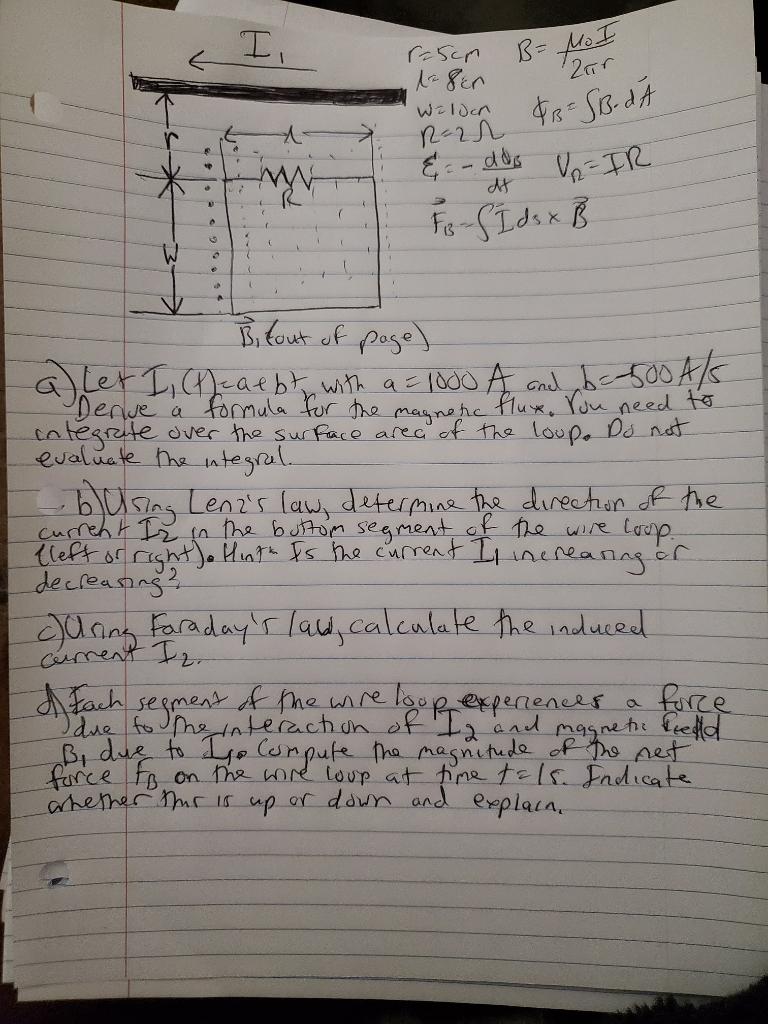 I₁
r=5cm B= μ₀I/2πr
l=8cm
w=10cm Φ_B=∫B·dA⃗
R=2Ω
ε=-dΦ_B/dt V_R=IR
F⃗_B=∫I⃗ds×B⃗
r
l
R
w
B⃗₁(out of page)
a) Let I₁(t)=a+bt, with a=1000 A and b=-500 A/s
Derive a formula for the magnetic flux. You need to
integrate over the surface area of the loop. Do not
evaluate the integral.
b) Using Lenz's law, determine the direction of the
current I₂ in the bottom segment of the wire loop
(left or right). Hint: Is the current I₁ increasing or
decreasing?
c) Using Faraday's law, calculate the induced
current I₂.
d) Each segment of the wire loop experiences a force
due to the interaction of I₂ and magnetic field
B₁ due to I₁. Compute the magnitude of the net
force F_B on the wire loop at time t=1s. Indicate
whether this is up or down and explain.